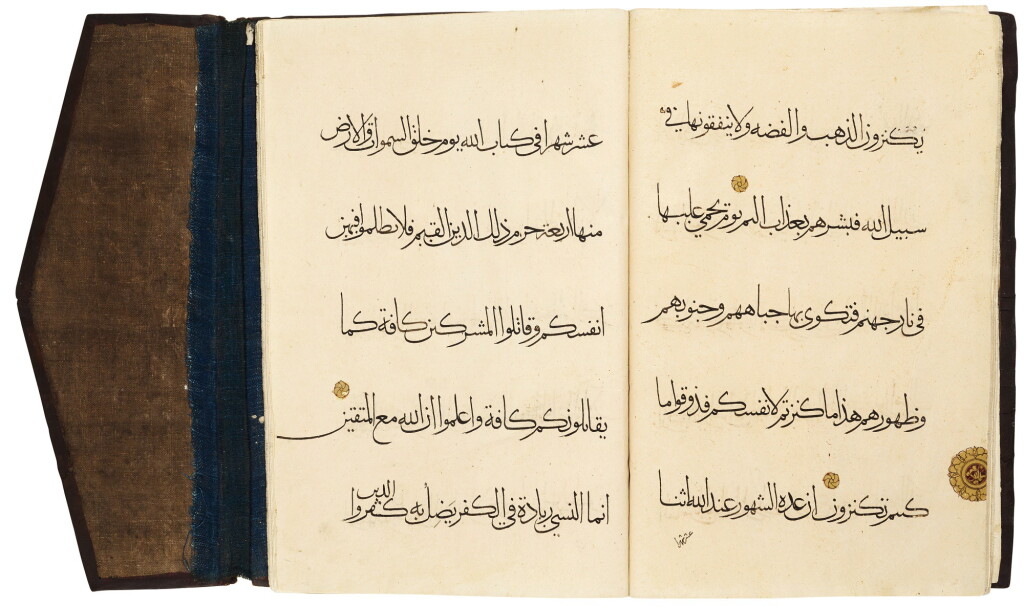 يكنزون الذهب والفضه ولا ينفقونها في
سبيل الله فبشرهم بعذاب اليم يوم يحمي عليها
في نار جهنم فتكوى بها جباههم وجنوبهم
وظهورهم هذا ما كنزتم لانفسكم فذوقوا ما
كنتم تكنزون ان عده الشهور عند الله اثنا
عشر شهرا
عشر شهرا في كتاب الله يوم خلق السموات والارض
منها اربعة حرم ذلك الدين القيم فلا تظلموا فيهن
انفسكم وقاتلوا المشركين كافة كما
يقاتلونكم كافة واعلموا ان الله مع المتقين
انما النسي زيادة في الكفر يضل به الذين كفروا